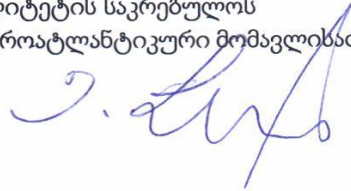 იტეტის საკრებულოს
როატლანტიკური მომავლისათ